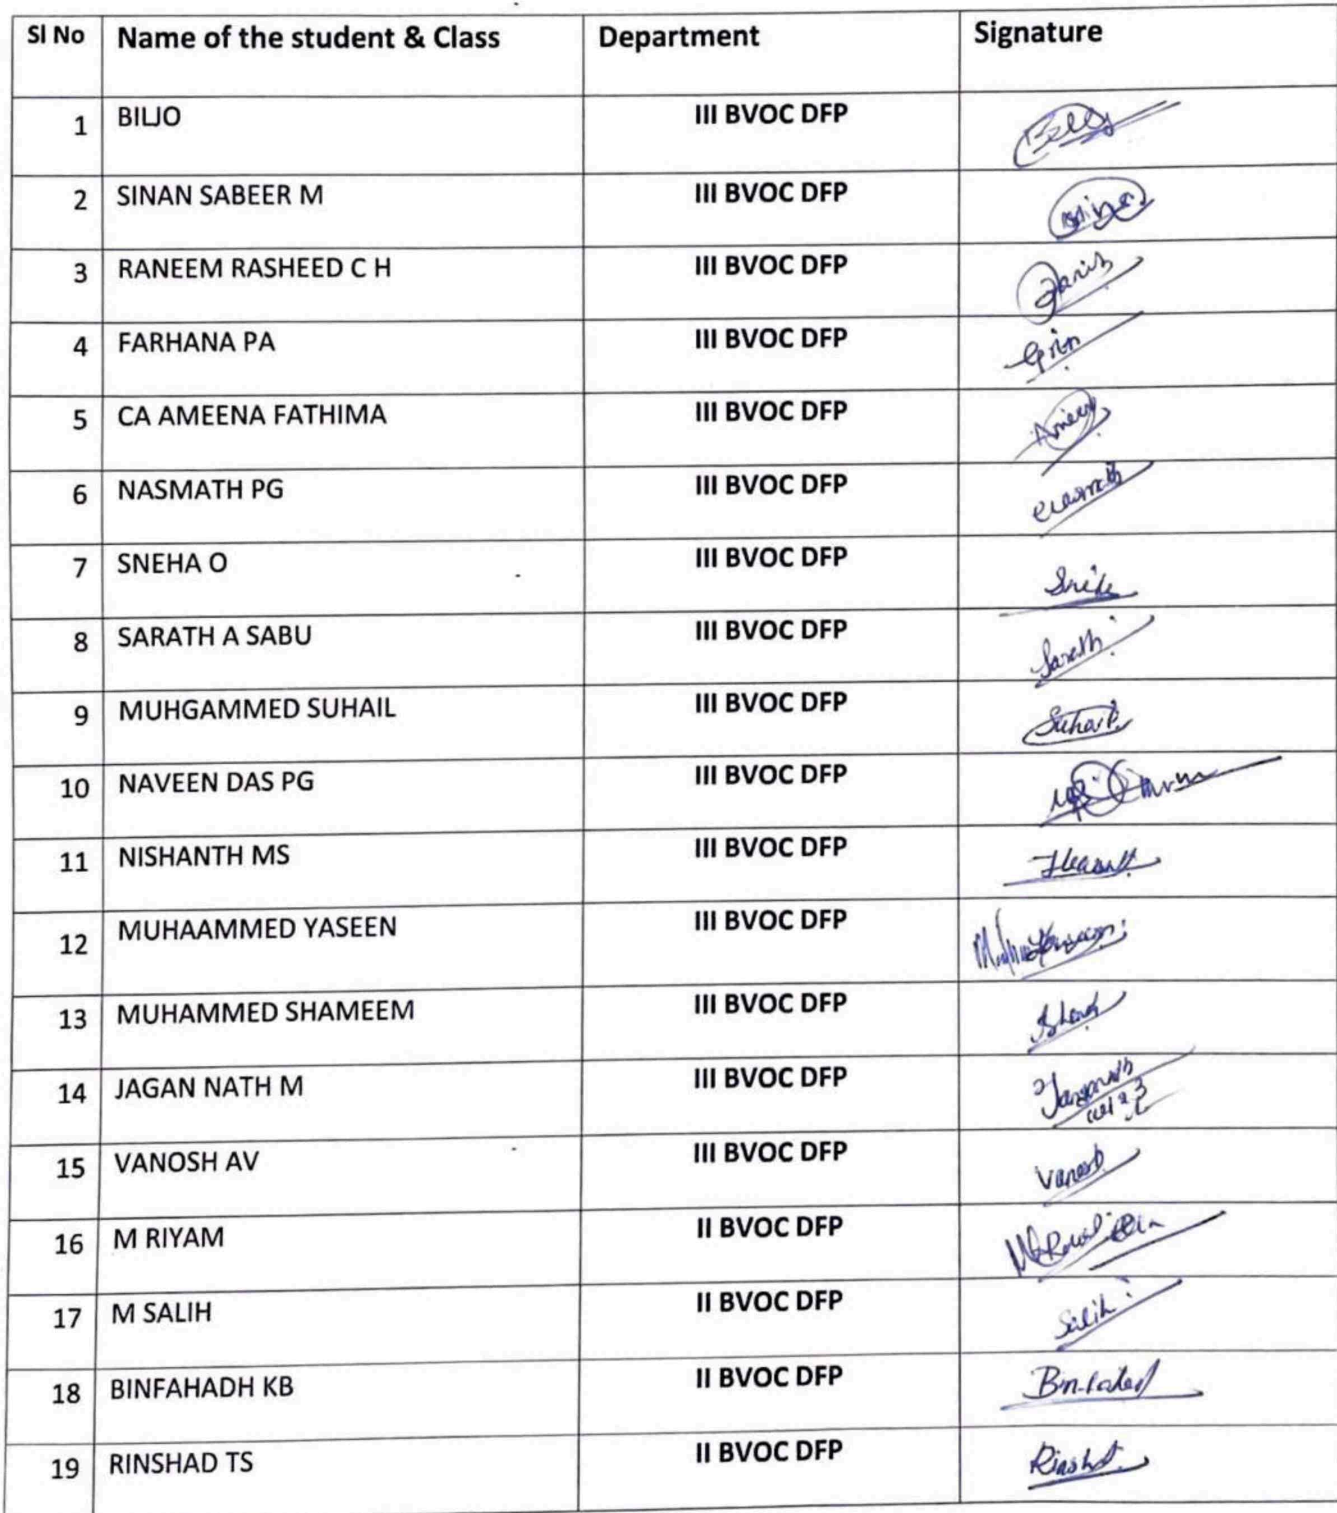 Sl No Name of the student & Class Department Signature
1 BIJO III BVOC DFP
2 SINAN SABEER M III BVOC DFP
3 RANEEM RASHEED C H III BVOC DFP
4 FARHANA PA III BVOC DFP
5 CA AMEENA FATHIMA III BVOC DFP
6 NASMATH PG III BVOC DFP
7 SNEHA O III BVOC DFP
8 SARATH A SABU III BVOC DFP Sarath
9 MUHGAMMED SUHAIL III BVOC DFP Suhail
10 NAVEEN DAS PG III BVOC DFP
11 NISHANTH MS III BVOC DFP
12 MUHAAMMED YASEEN III BVOC DFP
13 MUHAMMED SHAMEEM III BVOC DFP
14 JAGAN NATH M III BVOC DFP
15 VANOSH AV III BVOC DFP Vanosh
16 M RIYAM II BVOC DFP
17 M SALIH II BVOC DFP Salih
18 BINFAHADH KB II BVOC DFP
19 RINSHAD TS II BVOC DFP